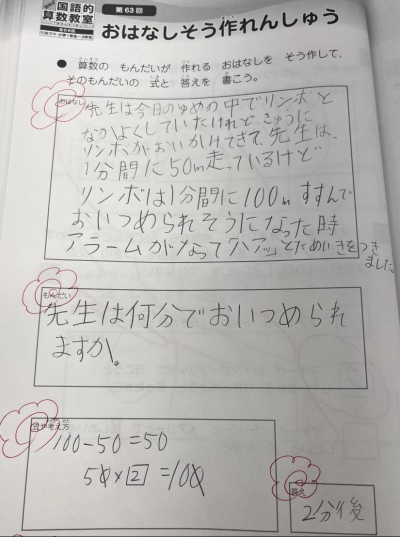 国語的
算数教室
第63回
おはなしそう作れんしゅう
● 算数の もんだいが 作れる おはなしを そう作して、
そのもんだいの 式と 答えを 書こう。
おはなし
先生は今日のゆめの中でリンボと
なかよくしていたけれどきゅうに
リンボがおいかけてきて、先生は、
1分間に50m走っているけど
リンボは1分間に100mすすんで
おいつめられそうになった時
アラームがなって「ハアッ」とためいきをつき
ました
もんだい
先生は何分でおいつめられ
ますか。
式や考え方
100-50=50
50×2=100
答え
2分後